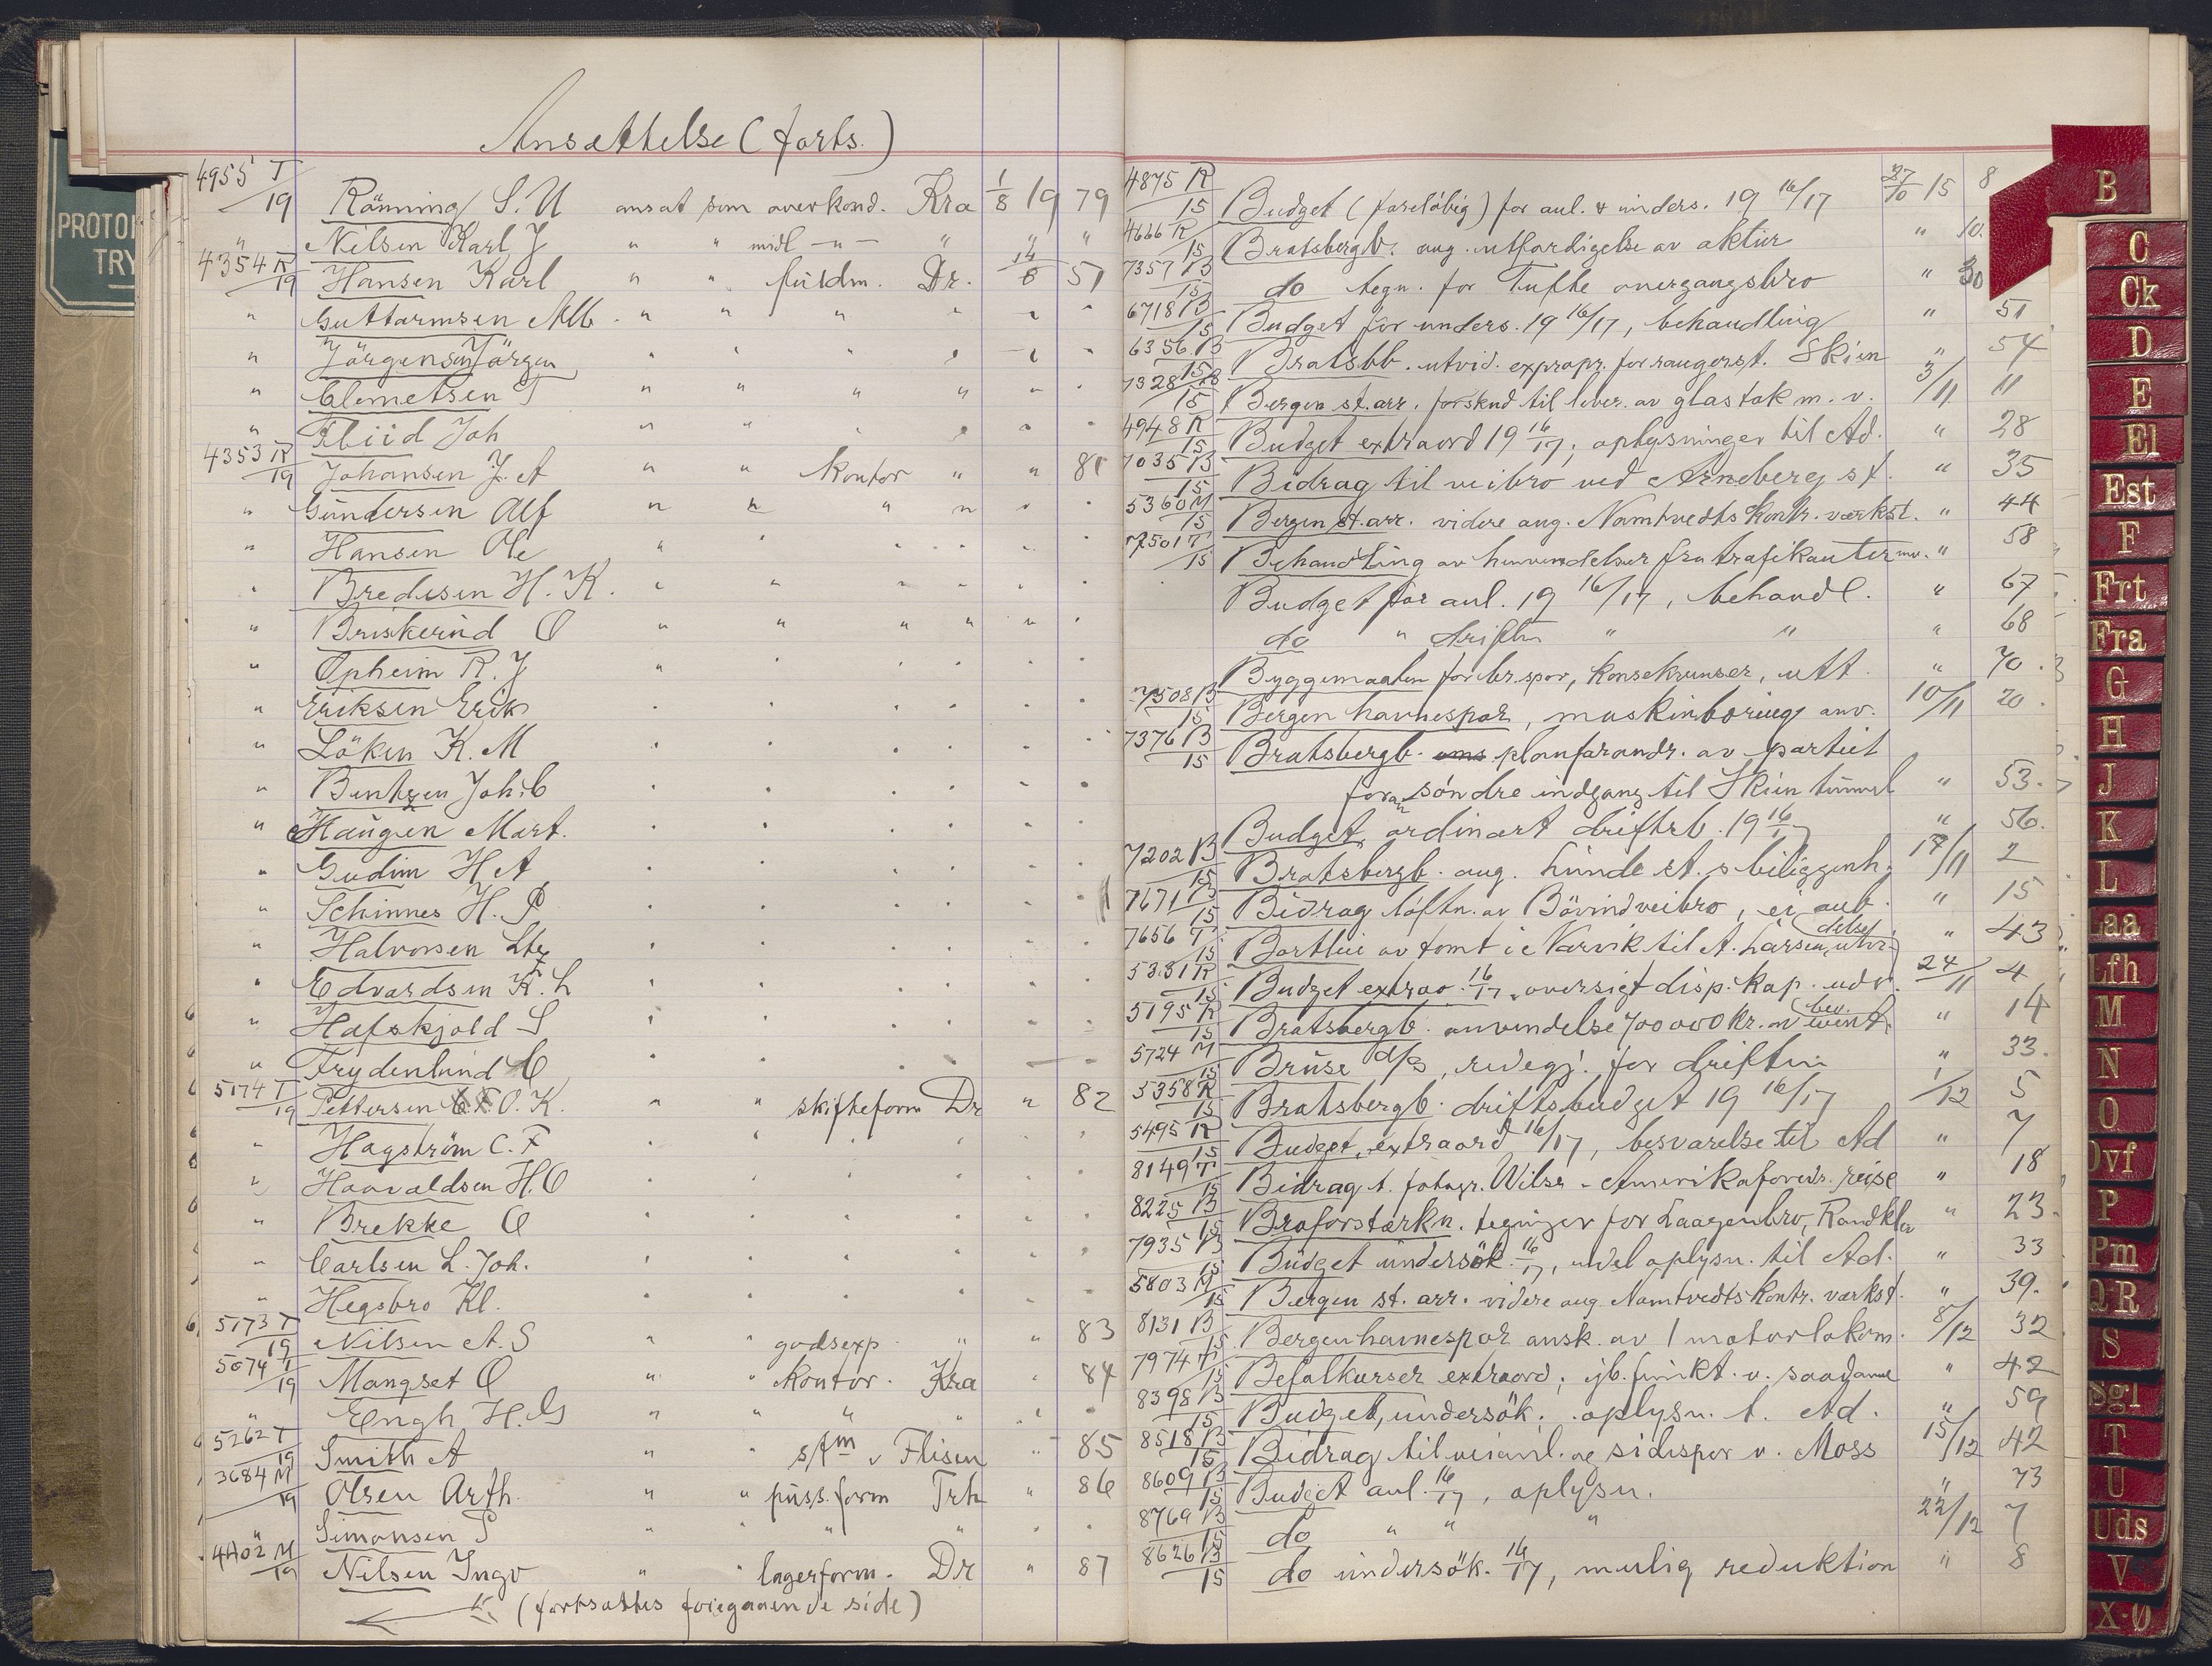 PROTO
TRY
Ansættelse (forts.)
4955 T/19 Rönning S. U ansat som overkond. Kra 1/8 19 79
" Nilsen Karl J " " midl —"— " " "
4354 R/19 Hansen Karl " " fuldm. Dr. 14/8 51
" Guttormsen Alb. " " " " " "
" Jörgensen Jörgen " " " " " "
" Clemetsen T " " " " " "
" Fliid Joh " " " " " "
4353 R/19 Johansen J. A " " kontor " " 81
" Gundersen Alf " " " " " "
" Hansen Ole " " " " " "
" Bredesen H. K. " " " " " "
" Briskerud O " " " " " "
" Opheim R. J " " " " " "
" Eriksen Erik " " " " " "
" Löken K. M " " " " " "
" Bentzen Joh. C " " " " " "
" Haugen Mart. " " " " " "
" Gudim H A " " " " " "
" Schinnes H. P " " " " " "
" Halvorsen " " " " " "
" Edvardsen K. L " " " " " "
" Hafskjold S " " " " " "
" Frydenlund C " " " " " "
5174 T/19 Pettersen O. K. " " skifteform Dr " 82
" Hagström C. F " " " " " "
" Haavaldsen H. O " " " " " "
" Brekke O " " " " " "
" Carlsen L. Joh. " " " " " "
" Hegsbro Kl. " " " " " "
5173 T/19 Nilsen A. S " " godsexp. " " 83
5074 T/19 Mangset O " " kontor. Kra " 84
" Engh H. G " " " " " "
5262 T/19 Smith A " " stm v Flisen " 85
3684 M/19 Olsen Arth. " " puss. form Trh " 86
" Simonsen P " " " " " "
4402 M/19 Nilsen Ingv " " lagerform. Dr " 87
(fortsættes foregaaende side)
4875 R/15 Budget (foreløbig) for anl. & unders. 19 16/17 27/10 15 8
4666 R/15 Bratsbergb. ang. utfærdigelse av aktier " 10.
7357 B/15 do tegn. for Tufte overgangsbro " 30
6718 B/15 Budget for unders. 19 16/17, behandling " 51
6356 B/15 Bratsbb. utvid. expropr. for rangerst. Skien " 54
7328 B/15 Bergen st. arr. forskud til lever. av glastak m. v. 3/11 11
4948 R/15 Budget extraord 19 16/17, oplysninger til Ad. " 28
7035 B/15 Bidrag til veibro ved Arneberg st. " 35
5360 M/15 Bergen st. arr. videre ang. Namtvedts kontr. værkst. " 44
7501 T/15 Behandling av henvendelser fra trafikanter mv. " 58
Budget for anl. 19 16/17, behandl. " 67
do " driften " " " 68
Byggemaaten for br. spor, konsekvenser, utt. " 70.
7508 B/15 Bergen havnespor, maskinboring anv. 10/11 20.
7376 B/15 Bratsbergb. planforandr. av partiet
foran søndre indgang til Skien tunnel " 53.
Budget ordinært driftsb. 19 16/17 " 56.
7202 B/15 Bratsbergb. ang. Lunde st. s beliggenh. 17/11 2
7671 B/15 Bidrag løftn. av Bövindveibro, ei anb. " 15
7656 T/15 Bortleie av tomt i Narvik til A. Larsen, utvidelse " 43
5331 R/15 Budget extrao. 16/17, oversigt disp. kap. udv. 24/11 4
5195 R/15 Bratsbergb. anvendelse 700000 kr. av bev. event. " 14
5724 M/15 Bruse D/S, redegj. for driften " 33.
5358 R/15 Bratsbergb. driftsbudget 19 16/17 1/12 5
5495 R/15 Budget, extraord 16/17, besvarelse til Ad " 7
8149 T/15 Bidrag t. fotogr. Wilse - Amerikaforedr. reise " 18
8225 B/15 Broforstærkn. tegninger for Laagenbro, Randkl " 23.
7935 B/15 Budget undersök. 16/17, oplysn. til Ad. " 33
5803 M/15 Bergen st. arr. videre ang. Namtvedts kontr. værkst. " 39.
8131 B/15 Bergen havnespor ansk. av 1 motorlokom. 8/12 32
7974 T/15 Befalkurser extraord; v. saadanne " 42
8398 B/15 Budget, undersök. oplysn. t. Ad. " 59
8518 B/15 Bidrag til veianl. og sidespor v. Moss 15/12 42
8609 B/15 Budget anl. 16/17, oplysn. " 73
8769 B/15 do " " " 22/12 7
8626 B/15 do undersök. 16/17, mulig reduktion " 8
B
C
Ck
D
E
El
Est
F
Frt
Fra
G
H
J
K
L
Laa
Lfh
M
N
O
Ovf
P
Pm
QR
S
Sgl
T
U
Uds
V
X-Ø